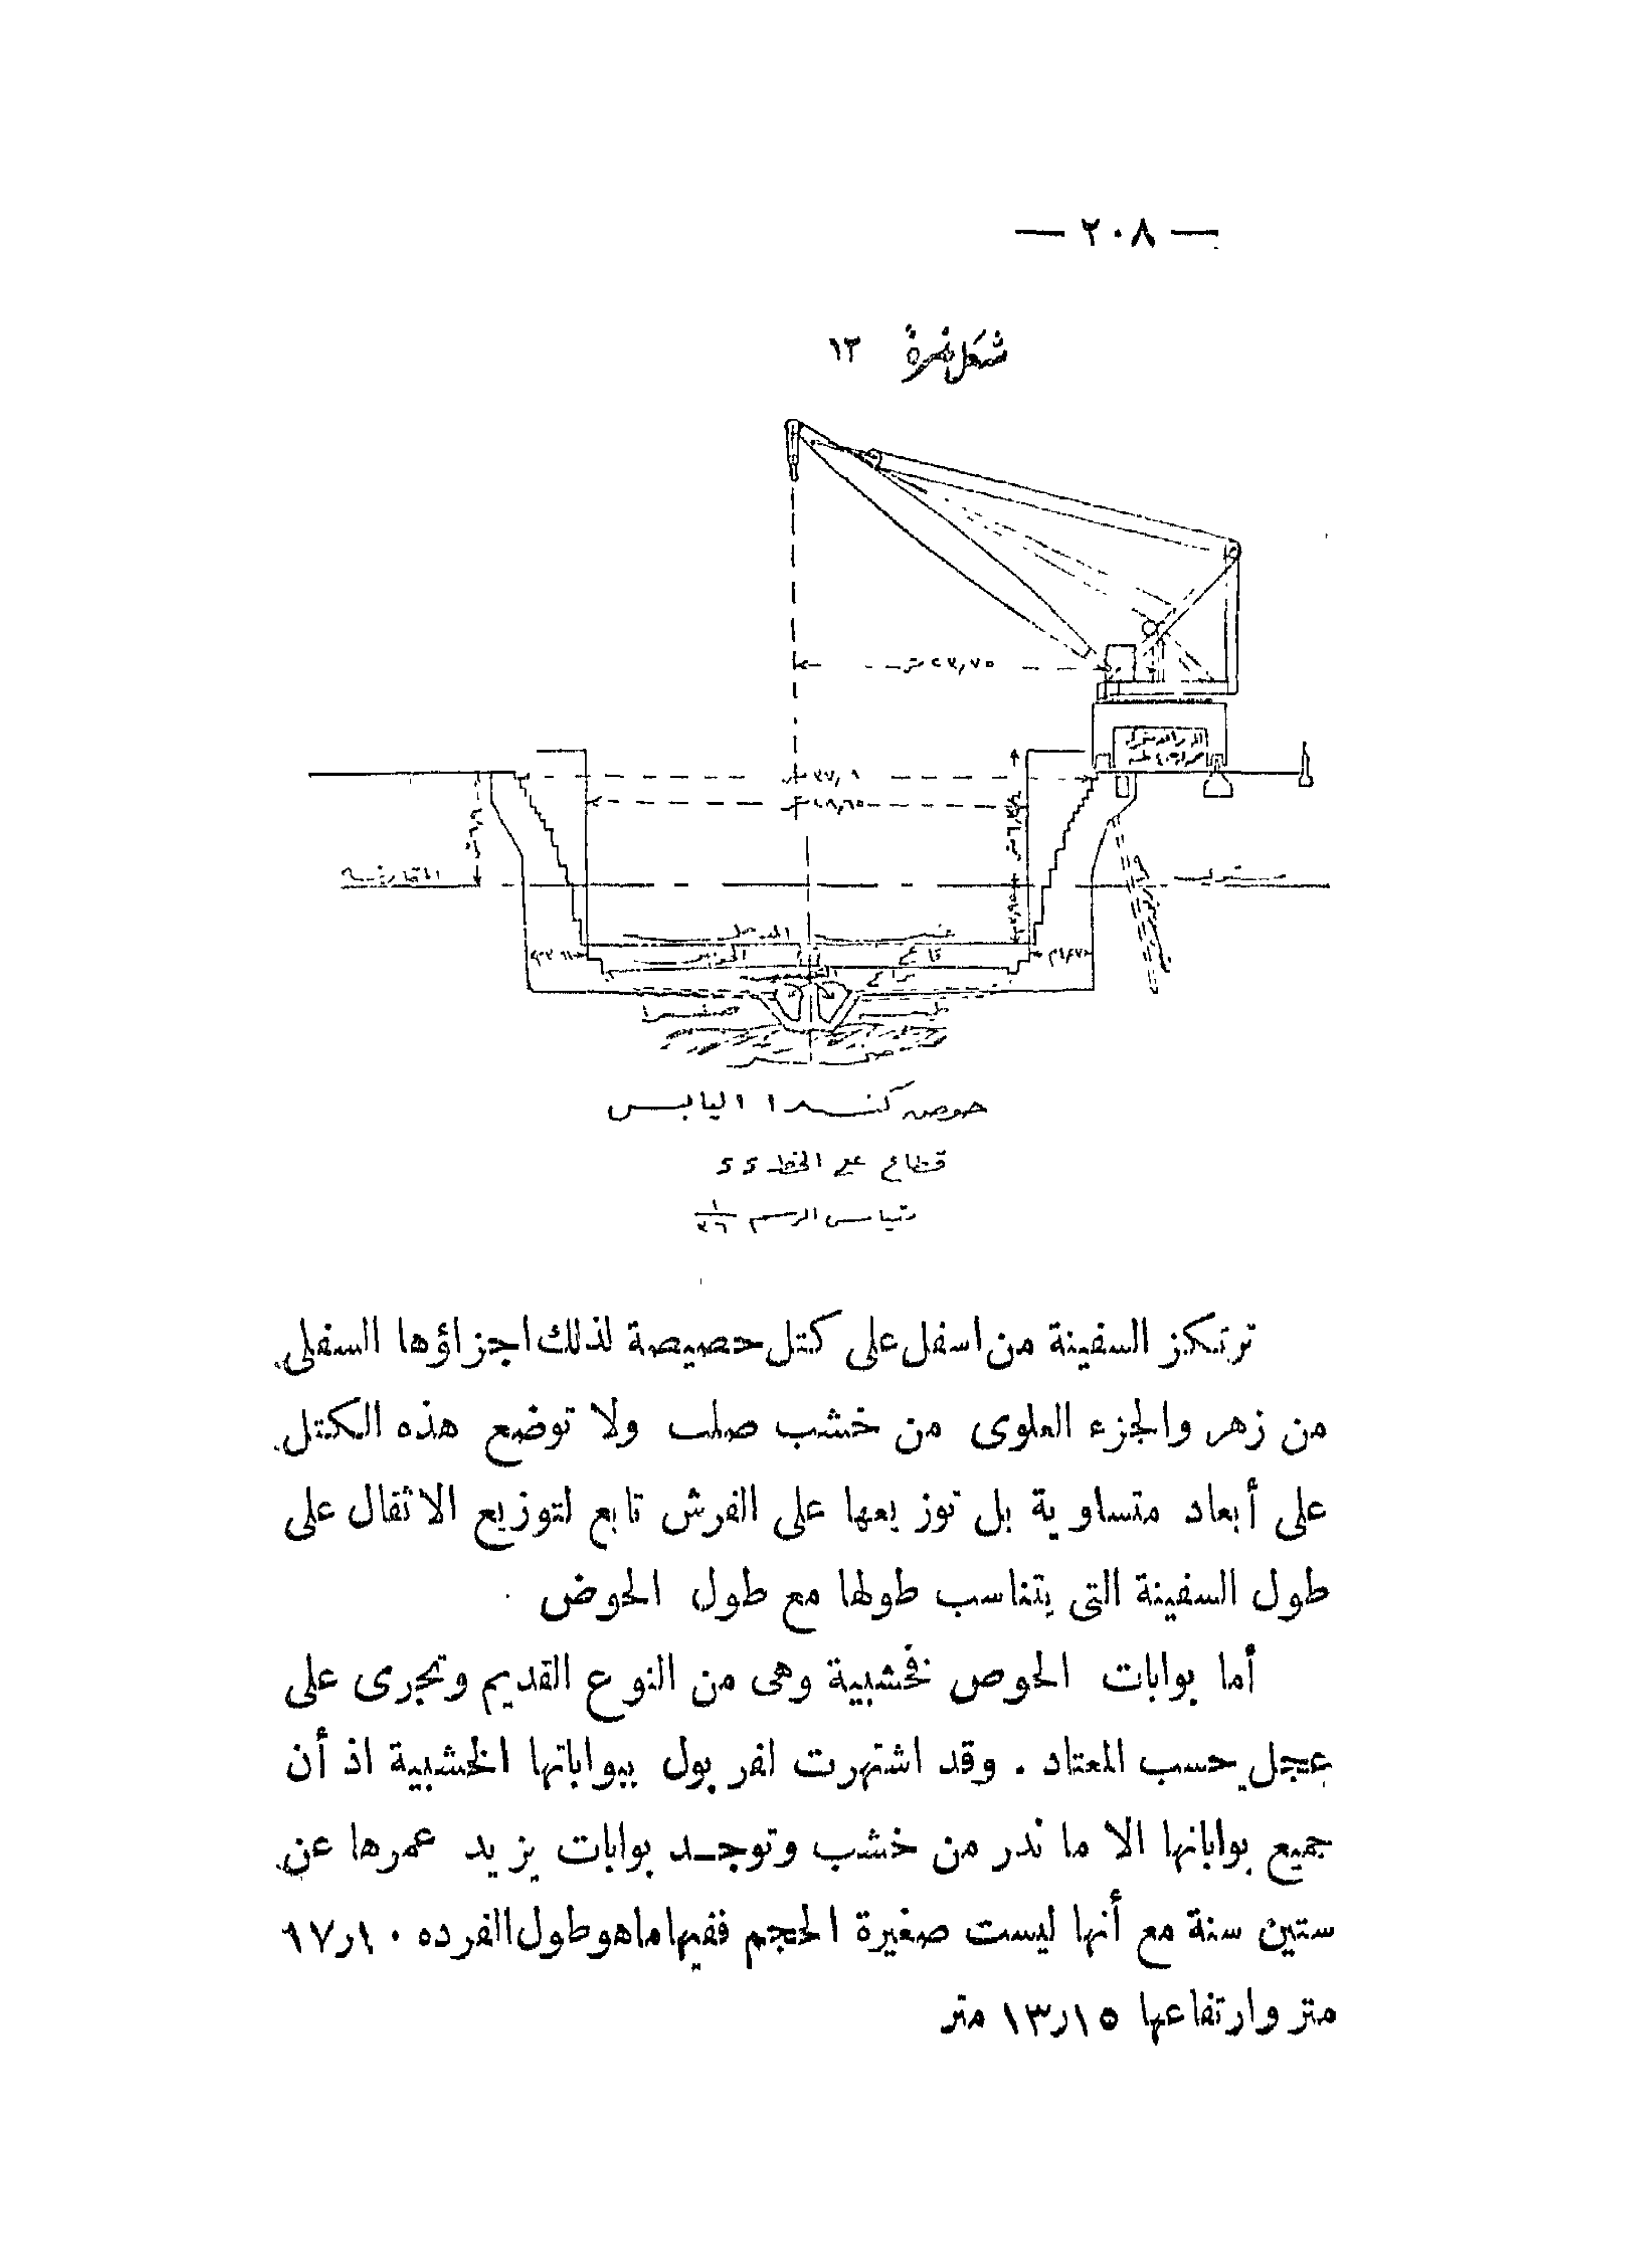 — ٢٠٨ —
شكل نمرة ١٢
٢٧,٧٥
٢٨,٦٥
حوض كندا اليابس
قطاع على الخط
مقياس الرسم
ترتكز السفينة من اسفل على كتل حصيصة لذلك اجزاؤها السفلى
من زهر والجزء العلوى من خشب صلب ولا توضع هذه الكتل
على أبعاد متساوية بل توزيعها على الفرش تابع لتوزيع الاثقال على
طول السفينة التى يتناسب طولها مع طول الحوض
أما بوابات الحوص فخشبية وهى من النوع القديم وتجرى على
عجل حسب المعتاد . وقد اشتهرت لفربول ببواباتها الخشبية اذ أن
جميع بواباتها الا ما ندر من خشب وتوجد بوابات يزيد عمرها عن
ستين سنة مع أنها ليست صغيرة الحجم ففيها ماهو طول الفرده ١٧٫١٠
متر وارتفاعها ١٣٫١٥ متر